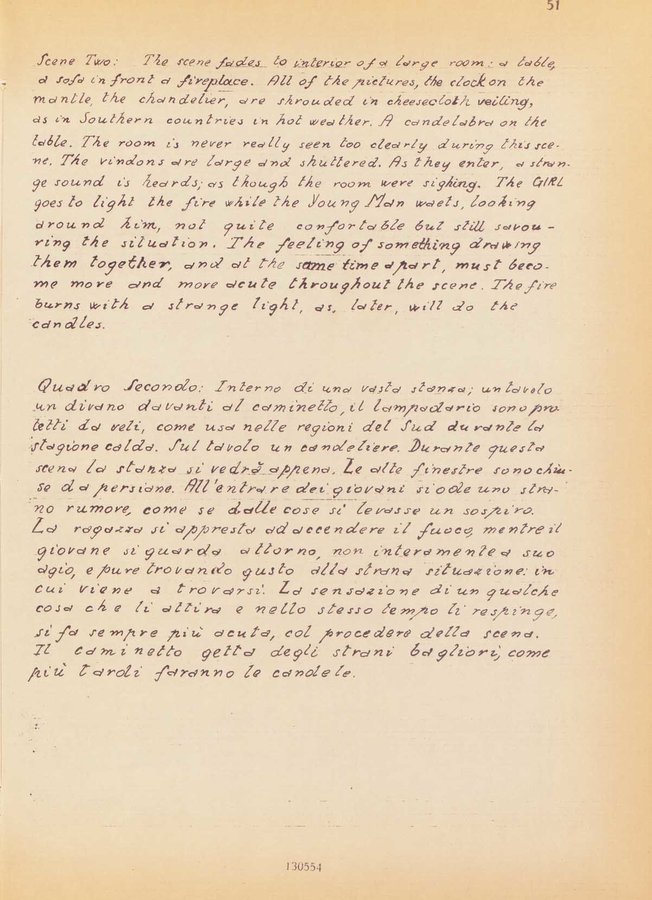 51
Scene Two: The scene fades to interior of a large room: a table,
a sofa in front a fireplace. All of the pictures, the clock on the
mantle, the chandelier, are shrouded in cheesecloth veiling,
as in Southern countries in hot weather. A candelabra on the
table. The room is never really seen too clearly during this sce-
ne. The vindons are large and shuttered. As they enter, a stran-
ge sound is heards; as though the room were sighing. The GIRL
goes to light the fire while the Young Man waets, looking
around him, not quite confortable but still savou-
ring the situation. The feeling of something drawing
them together, and at the same time apart, must beco-
me more and more acute throughout the scene. The fire
burns with a strange light, as, later, will do the
candles.
Quadro Secondo: Interno di una vasta stanza; un tavolo
un divano davanti al caminetto, il lampadario sono pro-
tetti da veli, come usa nelle regioni del Sud durante la
stagione calda. Sul tavolo un candeliere. Durante questa
scena la stanza si vedrà appena. Le alte finestre sono chiu-
se da persiane. All'entrare dei giovani si ode uno stra-
no rumore, come se dalle cose si levasse un sospiro.
La ragazza si appresta ad accendere il fuoco, mentre il
giovane si guarda attorno, non interamente a suo
agio, e pure trovando gusto alla strana situazione: in
cui viene a trovarsi. La sensazione di un qualche
cosa che li attira e nello stesso tempo li respinge,
si fa sempre più acuta, col procedere della scena.
Il caminetto getta degli strani bagliori, come
più tardi faranno le candele.
130554